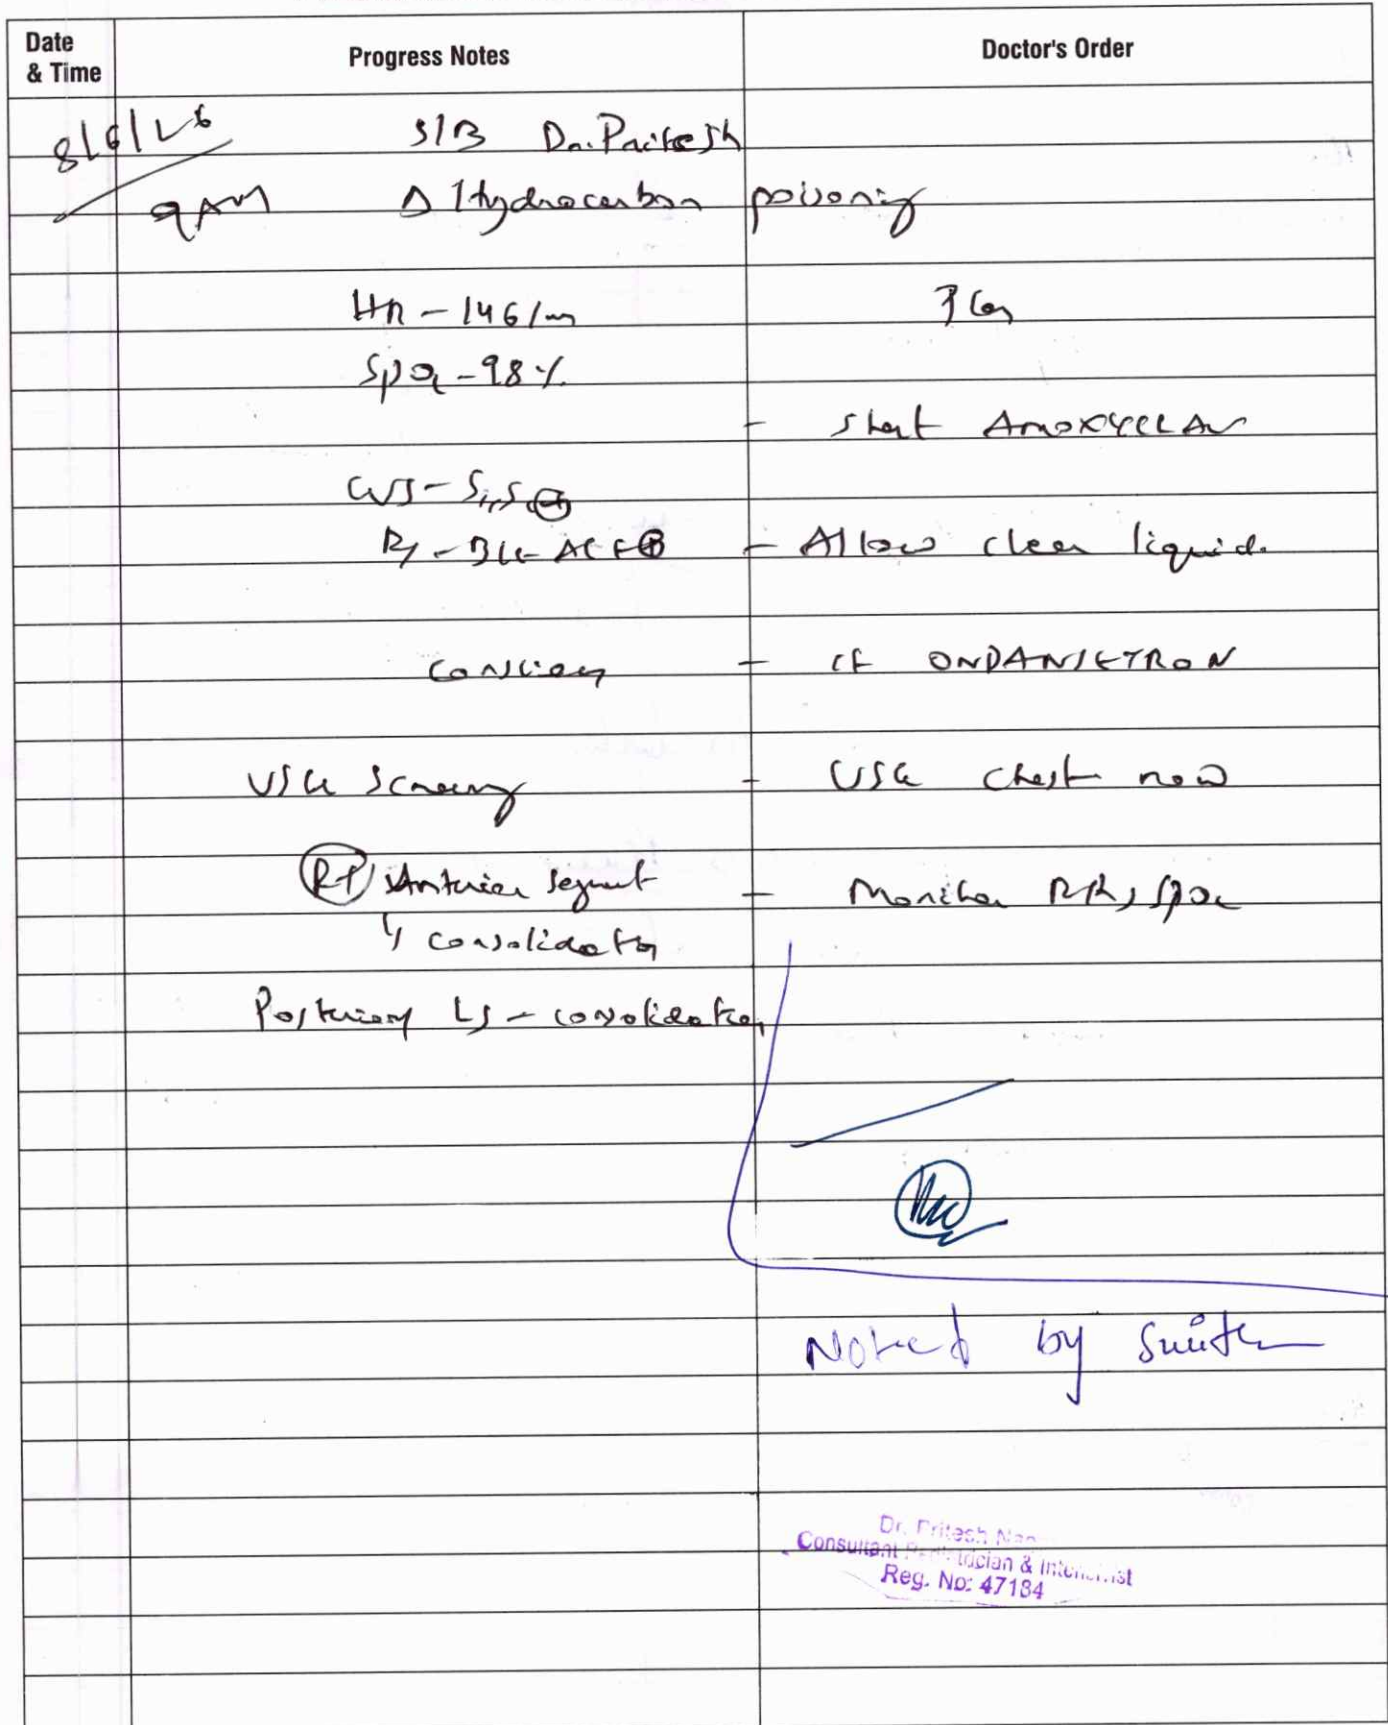 Date & Time
Progress Notes
Doctor's Order
8/6/26
S/B Dr. Pritesh
9 AM
Δ Hydrocarbon poisoning
HR - 146/m
Plan
SpO2 - 98 %
- Start AMOXYCLAV
CVS - S1,S2 ⊕
RS - B/L AEE ⊕
- Allow clear liquid.
Conscious
- CT ONDANSETRON
USG Screening
- USG chest now
(Rt) Anterior segment
- Monitor RR, SpO2
↳ consolidation
Posteriorly LS - consolidation
Noted by
Dr. Pritesh
Consultant & Intensivist
Reg. No: 47184